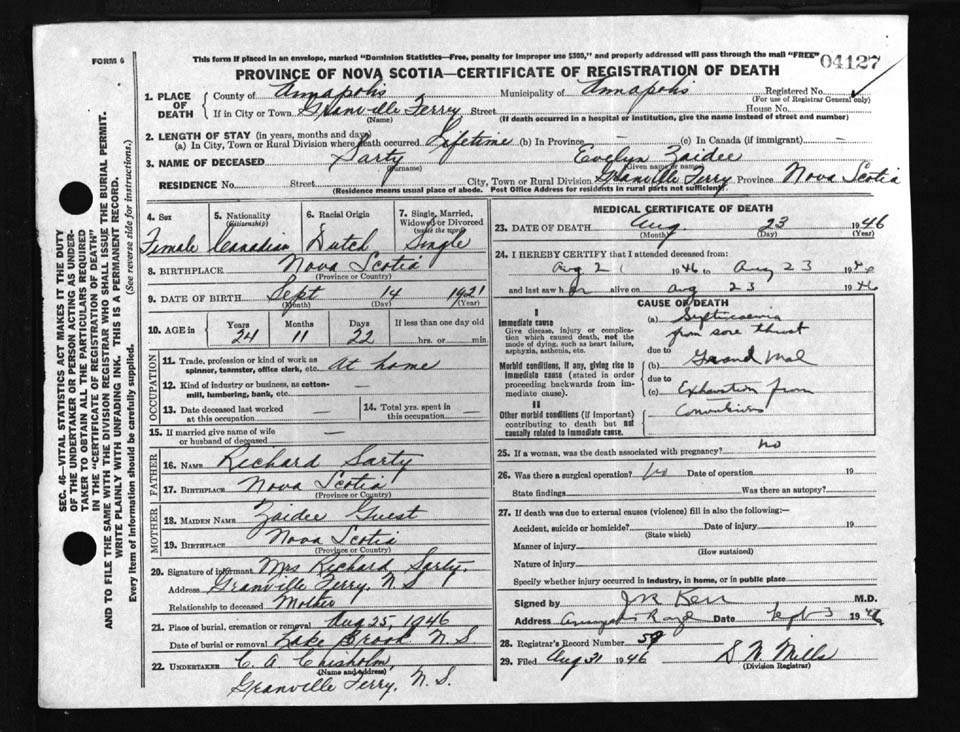 FORM 6
This form if placed in an envelope, marked "Dominion Statistics—Free, penalty for improper use $300," and properly addressed will pass through the mail "FREE"
04127
PROVINCE OF NOVA SCOTIA—CERTIFICATE OF REGISTRATION OF DEATH
1. PLACE OF DEATH County of Annapolis Municipality of Annapolis Registered No. (For use of Registrar General only)
If in City or Town Granville Ferry (Name) Street House No.
(If death occurred in a hospital or institution, give the name instead of street and number)
2. LENGTH OF STAY (in years, months and days)
(a) In City, Town or Rural Division where death occurred Lifetime (b) In Province — (c) In Canada (if immigrant) —
3. NAME OF DECEASED Sarty (Surname) Evelyn Zaidee (Given name or names)
RESIDENCE No. Street City, Town or Rural Division Granville Ferry Province Nova Scotia
(Residence means usual place of abode. Post Office Address for residents in rural parts not sufficient)
SEC. 46—VITAL STATISTICS ACT MAKES IT THE DUTY
OF THE UNDERTAKER OR PERSON ACTING AS UNDER-
TAKER TO OBTAIN ALL THE PARTICULARS REQUIRED
IN THE "CERTIFICATE OF REGISTRATION OF DEATH"
AND TO FILE THE SAME WITH THE DIVISION REGISTRAR WHO SHALL ISSUE THE BURIAL PERMIT.
WRITE PLAINLY WITH UNFADING INK. THIS IS A PERMANENT RECORD.
Every item of information should be carefully supplied. (See reverse side for instructions.)
4. Sex Female
5. Nationality (Citizenship) Canadian
6. Racial Origin Dutch
7. Single, Married, Widowed or Divorced (write the word) Single
8. BIRTHPLACE Nova Scotia (Province or Country)
9. DATE OF BIRTH Sept (Month) 14 (Day) 1921 (Year)
10. AGE in Years 24 Months 11 Days 22 If less than one day old hrs. or min.
OCCUPATION
11. Trade, profession or kind of work as spinner, teamster, office clerk, etc. At home
12. Kind of industry or business, as cotton-mill, lumbering, bank, etc. —
13. Date deceased last worked at this occupation —
14. Total yrs. spent in this occupation —
15. If married give name of wife or husband of deceased —
FATHER
16. NAME Richard Sarty
17. BIRTHPLACE Nova Scotia (Province or Country)
MOTHER
18. MAIDEN NAME Zaidee Guest
19. BIRTHPLACE Nova Scotia (Province or Country)
20. Signature of informant Mrs Richard Sarty,
Address Granville Ferry, N S
Relationship to deceased Mother
21. Place of burial, cremation or removal Aug 25, 1946
Date of burial or removal Lake Brook N. S
22. UNDERTAKER C. A. Chisholm, (Name and address)
Granville Ferry, N. S.
MEDICAL CERTIFICATE OF DEATH
23. DATE OF DEATH Aug. (Month) 23 (Day) 1946 (Year)
24. I HEREBY CERTIFY that I attended deceased from:
Aug 21 1946 to Aug 23 1946
and last saw her alive on Aug 23 1946
CAUSE OF DEATH
I
Immediate cause
Give disease, injury or complication which caused death, not the mode of dying, such as heart failure, asphyxia, asthenia, etc.
(a) Septicaemia
from sore throat
due to
Morbid conditions, if any, giving rise to immediate cause (stated in order proceeding backwards from immediate cause).
(b) Grand Mal
due to
(c) Exhaustion from
Convulsions
II
Other morbid conditions (if important) contributing to death but not causally related to immediate cause.
25. If a woman, was the death associated with pregnancy? no
26. Was there a surgical operation? No Date of operation 19
State findings Was there an autopsy?
27. If death was due to external causes (violence) fill in also the following:—
Accident, suicide or homicide? (State which) Date of injury 19
Manner of injury (How sustained)
Nature of injury
Specify whether injury occurred in industry, in home, or in public place
Signed by Kerr M.D.
Address Annapolis Royal Date Sept 3 1946
28. Registrar's Record Number 59
29. Filed Aug 31 1946 S N. Mills (Division Registrar)